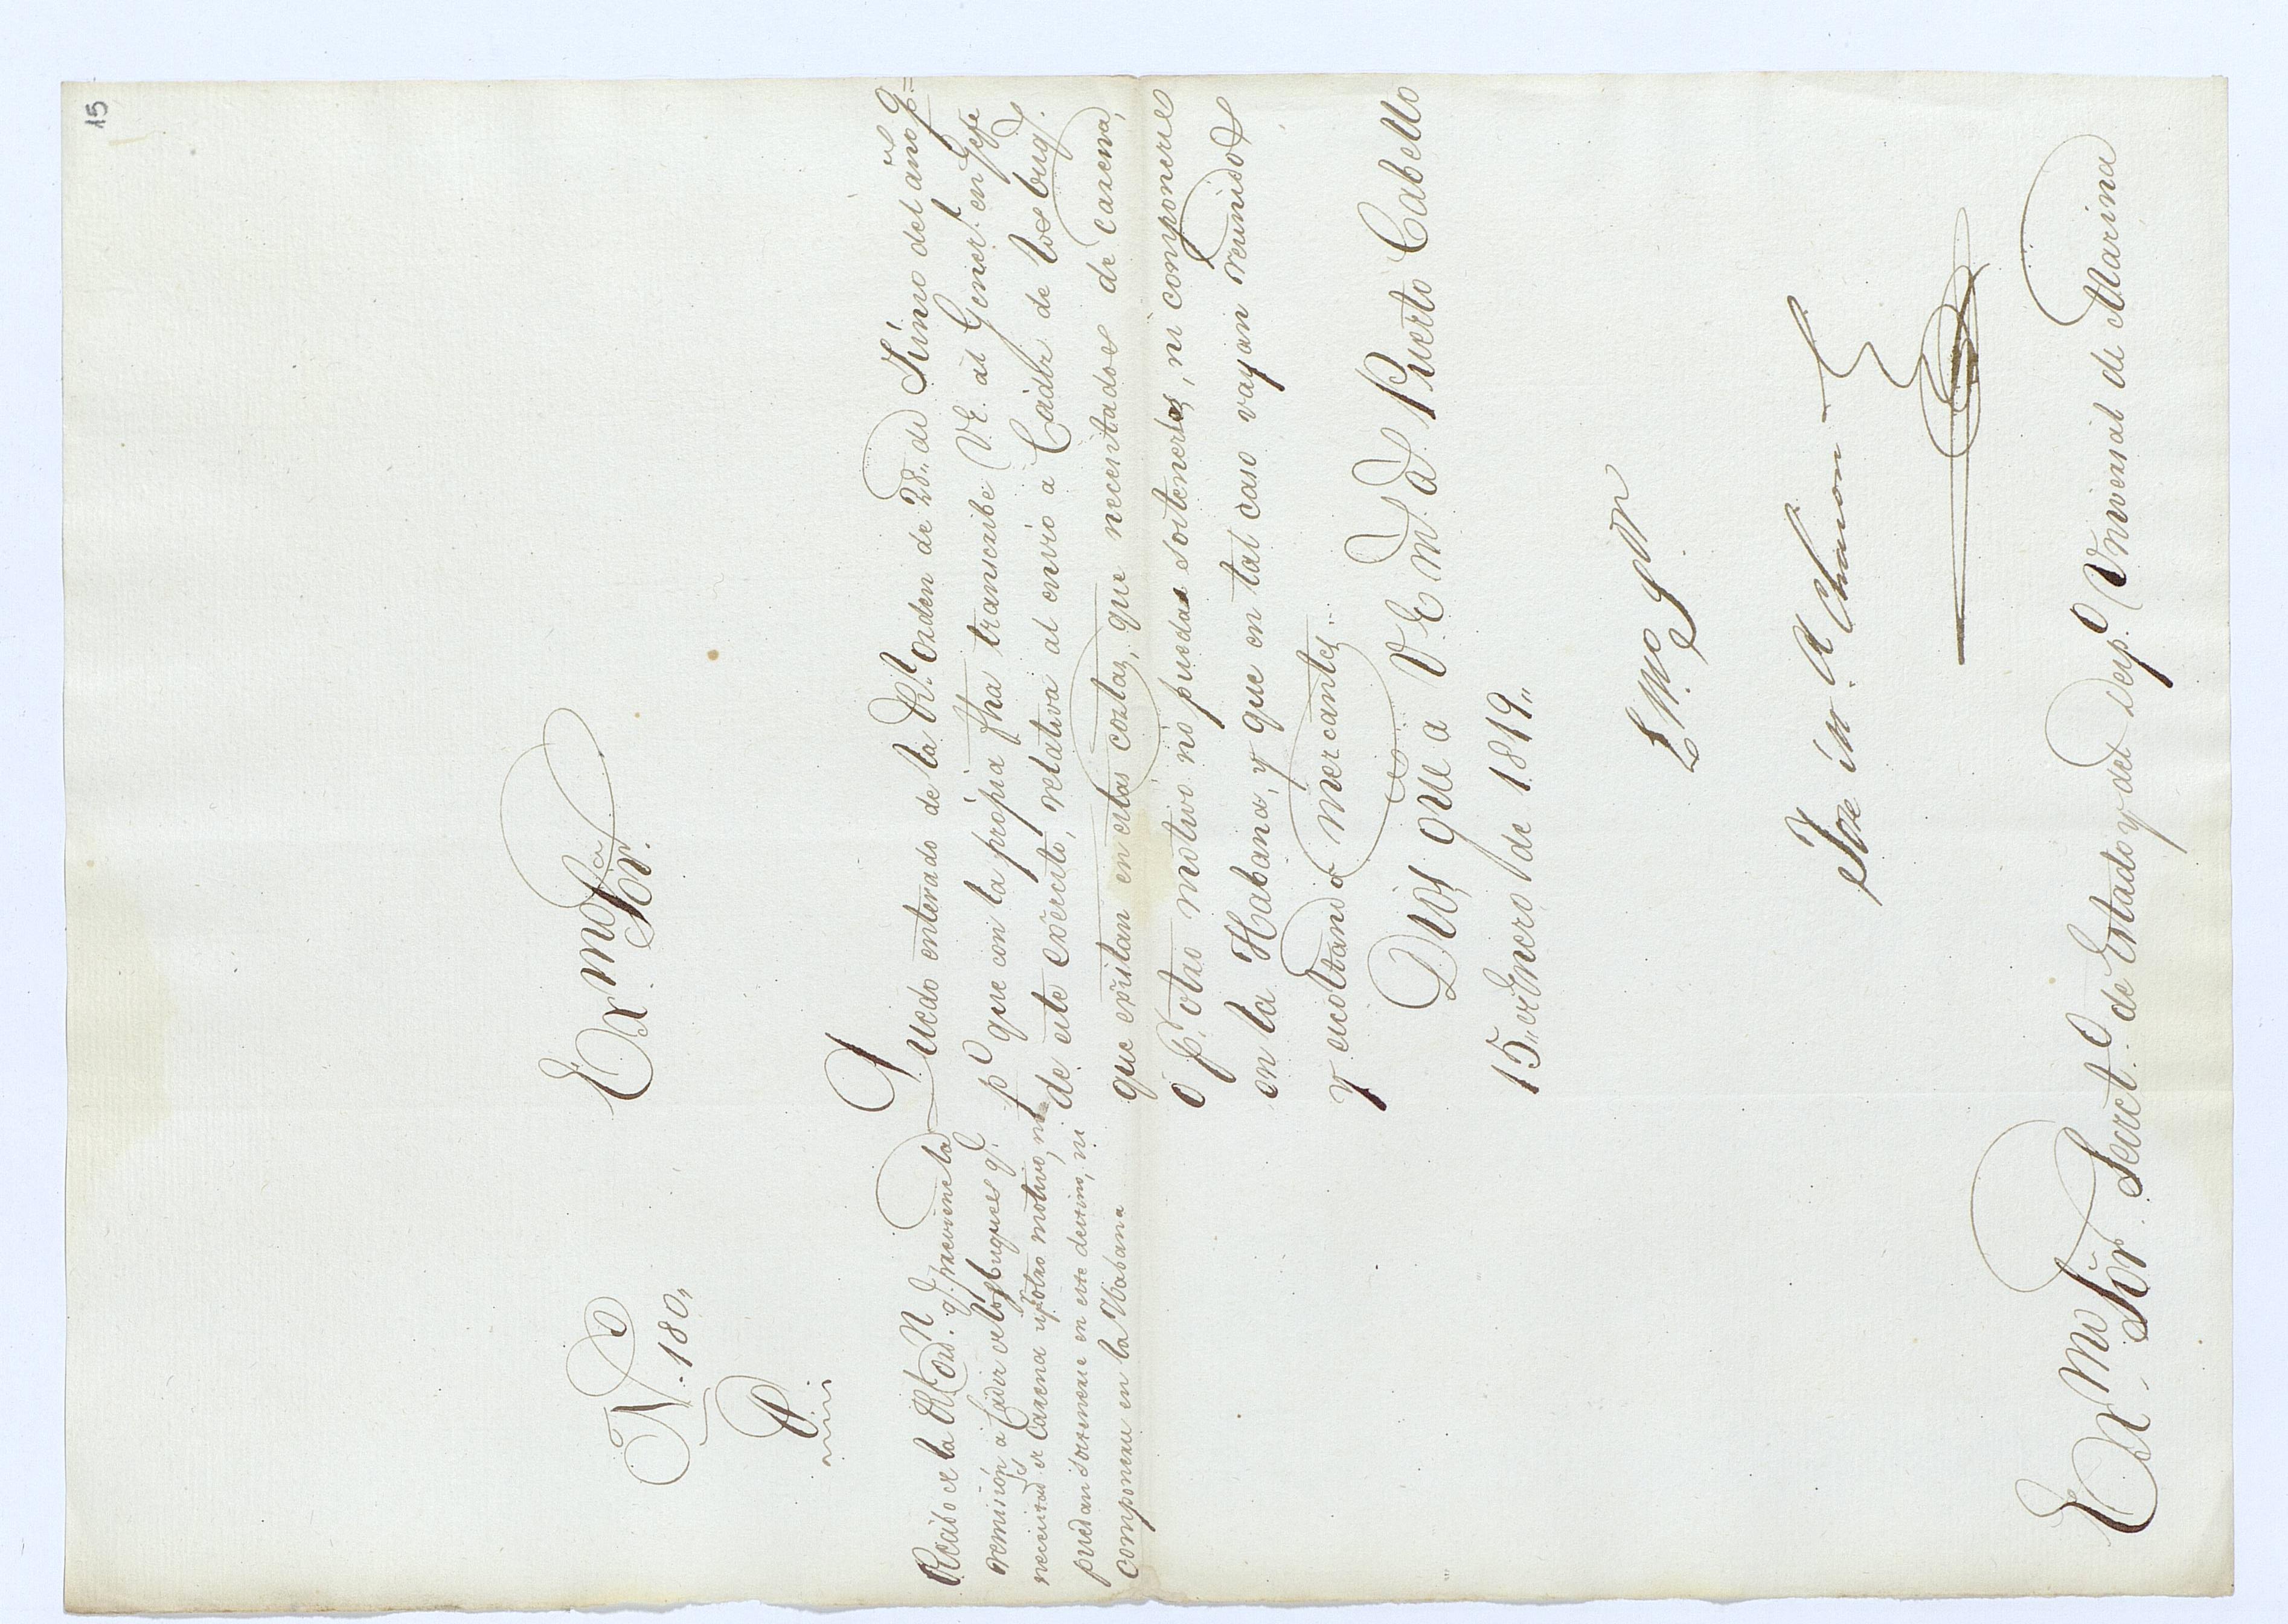 15
Exmo Sor.
No. 180,,
P.
Recibo de la Rl. Ordn. q. previene la
remision a Cadiz de los buques q.
necesitads. de Carena y pr. otro motivo, no
puedan sostenerse en este destino, ni
componerse en la Habana
Quedo enterado de la Rl. orden de 28,, de Junio del año
po. que con la propia fha transcribe V.E. al Generl. en Gefe
de este exercito, relativa al envio a Cadiz de los buqs.
que existan en estas costas, que necesitados de carena,
o pr. otro motivo no puedan sostenerse, ni componerse
en la Habana, y que en tal caso vayan reunidos
y escoltando a mercantes.
Dios gue a V. E. ms. as. Puerto Cabello
15,, de Enero de 1819,,
Exmo Sor.
Jose Ma. Chacon
Exmo. Sor. Secreto. de Estado y del Despo. Universal de Marina